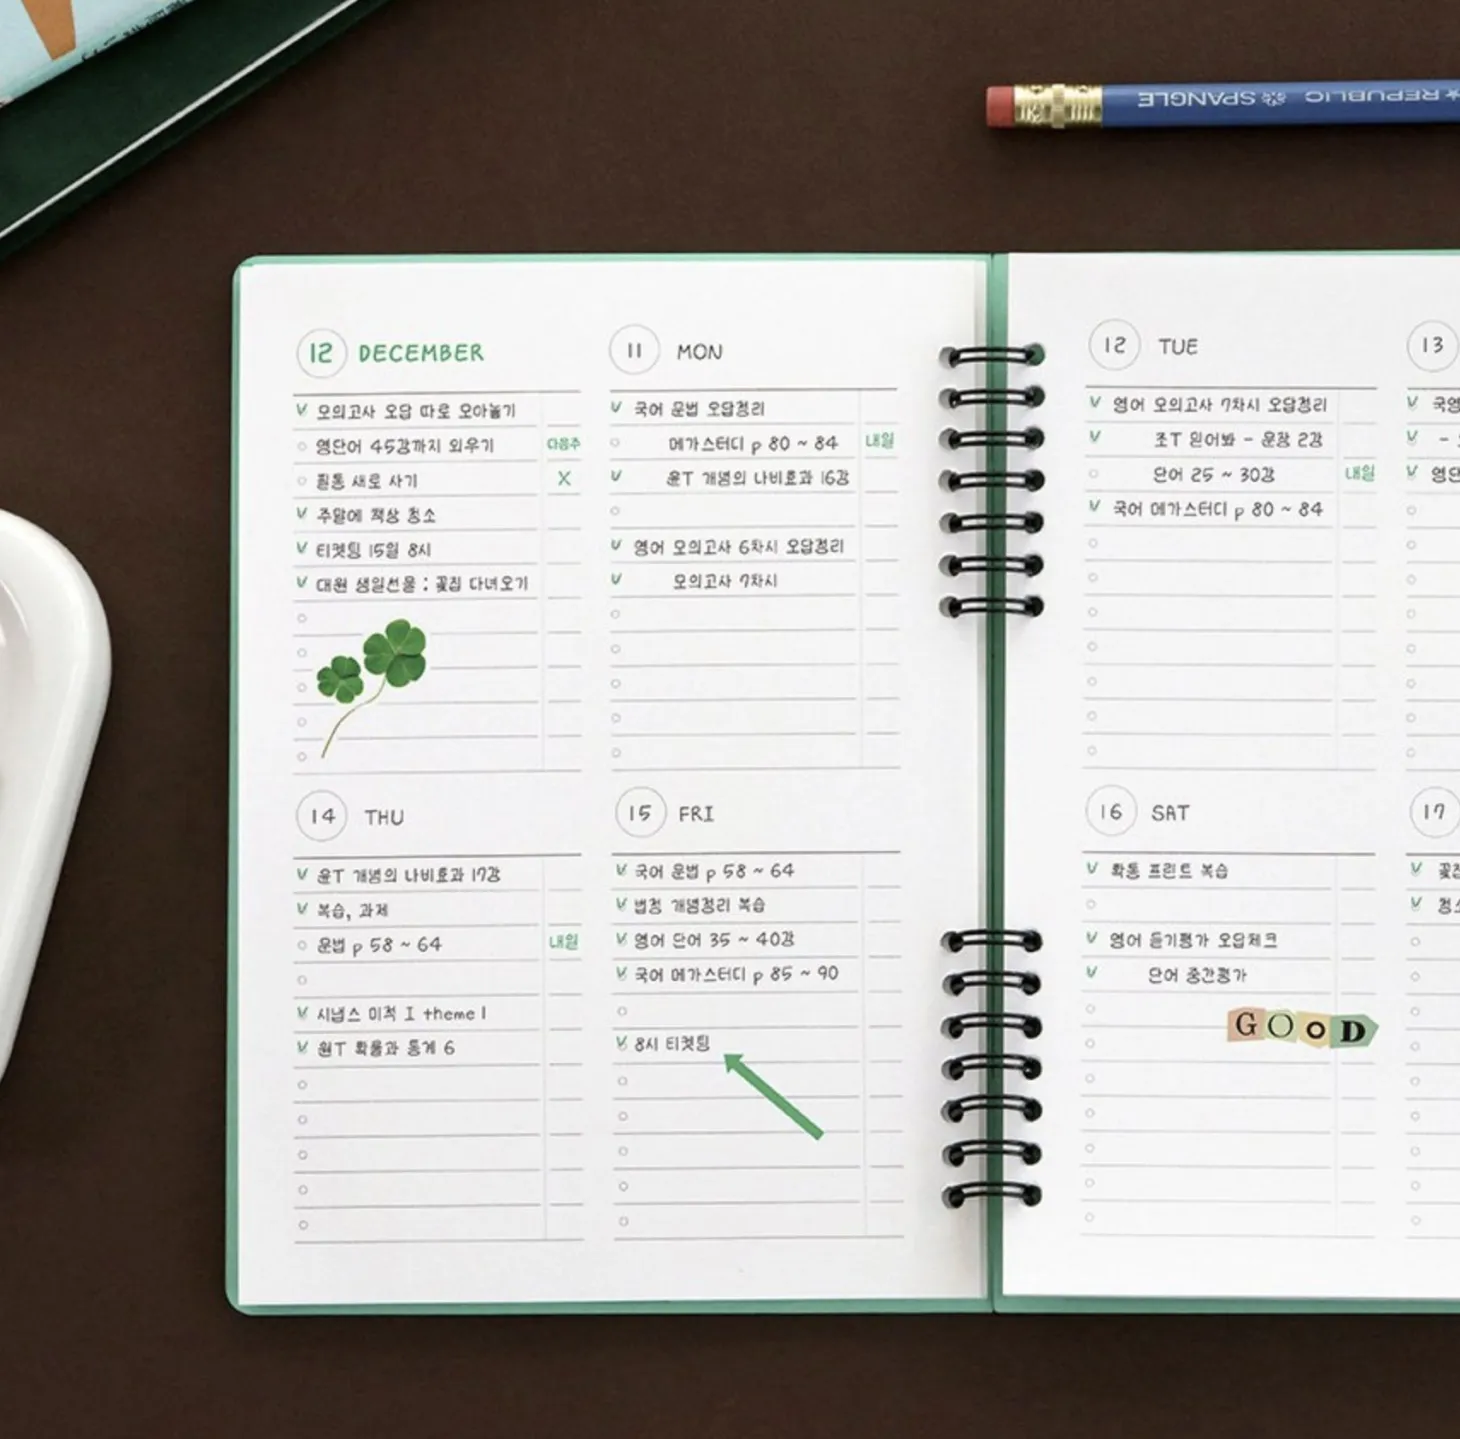 SPANGLE REPUBLIC
12 DECEMBER
모의고사 오답 따로 모아놓기
영단어 45강까지 외우기 다음주
필통 새로 사기 X
주말에 책상 청소
티켓팅 15일 8시
대원 생일선물 : 꽃집 다녀오기
11 MON
국어 문법 오답정리
메가스터디 p 80 ~ 84 내일
윤T 개념의 나비효과 16강
영어 모의고사 6차시 오답정리
모의고사 7차시
14 THU
윤T 개념의 나비효과 17강
복습, 과제
문법 p 58 ~ 64 내일
시냅스 미적 I theme 1
원T 확률과 통계 6
15 FRI
국어 문법 p 58 ~ 64
법정 개념정리 복습
영어 단어 35 ~ 40강
국어 메가스터디 p 85 ~ 90
8시 티켓팅
12 TUE
영어 모의고사 7차시 오답정리
조T 믿어봐 - 문장 2강
단어 25 ~ 30강 내일
국어 메가스터디 p 80 ~ 84
16 SAT
확통 프린트 복습
영어 듣기평가 오답체크
단어 중간평가
GOOD
13
국영
-
영단
17